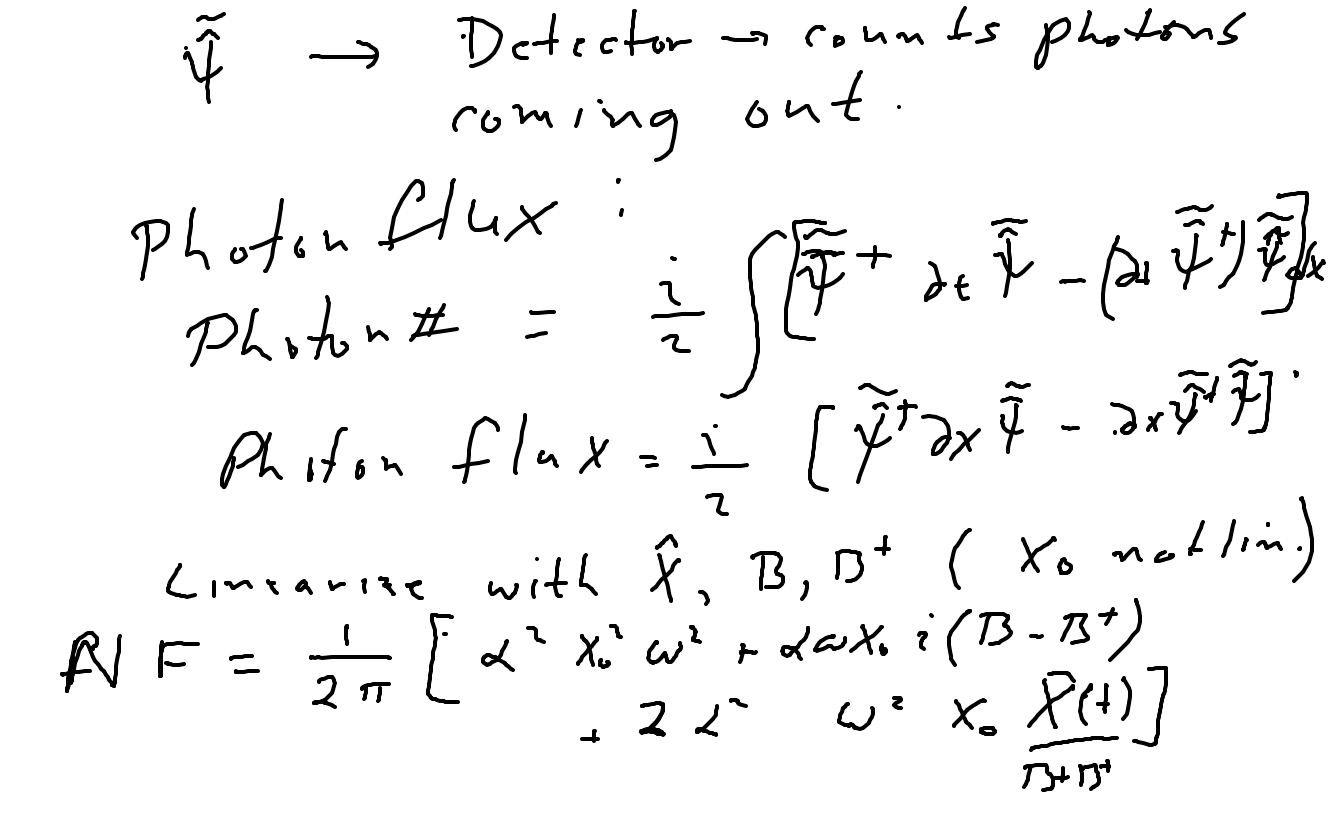 ψ̂̃ → Detector → counts photons
coming out.
Photon flux :
Photon # = i/2 ∫ [ψ̂̃⁺ ∂t ψ̂̃ − (∂t ψ̂̃⁺) ψ̂̃] dx
Photon flux = i/2 [ψ̂̃⁺ ∂x ψ̂̃ − ∂x ψ̂̃⁺ ψ̂̃].
Linearize with X̂, B, B⁺ ( X₀ not lin.)
F = 1/2π [α² X₀² ω² + αωX₀ i(B - B⁺)
+ 2 α² ω² X₀ X̂(t)]
B+B⁺